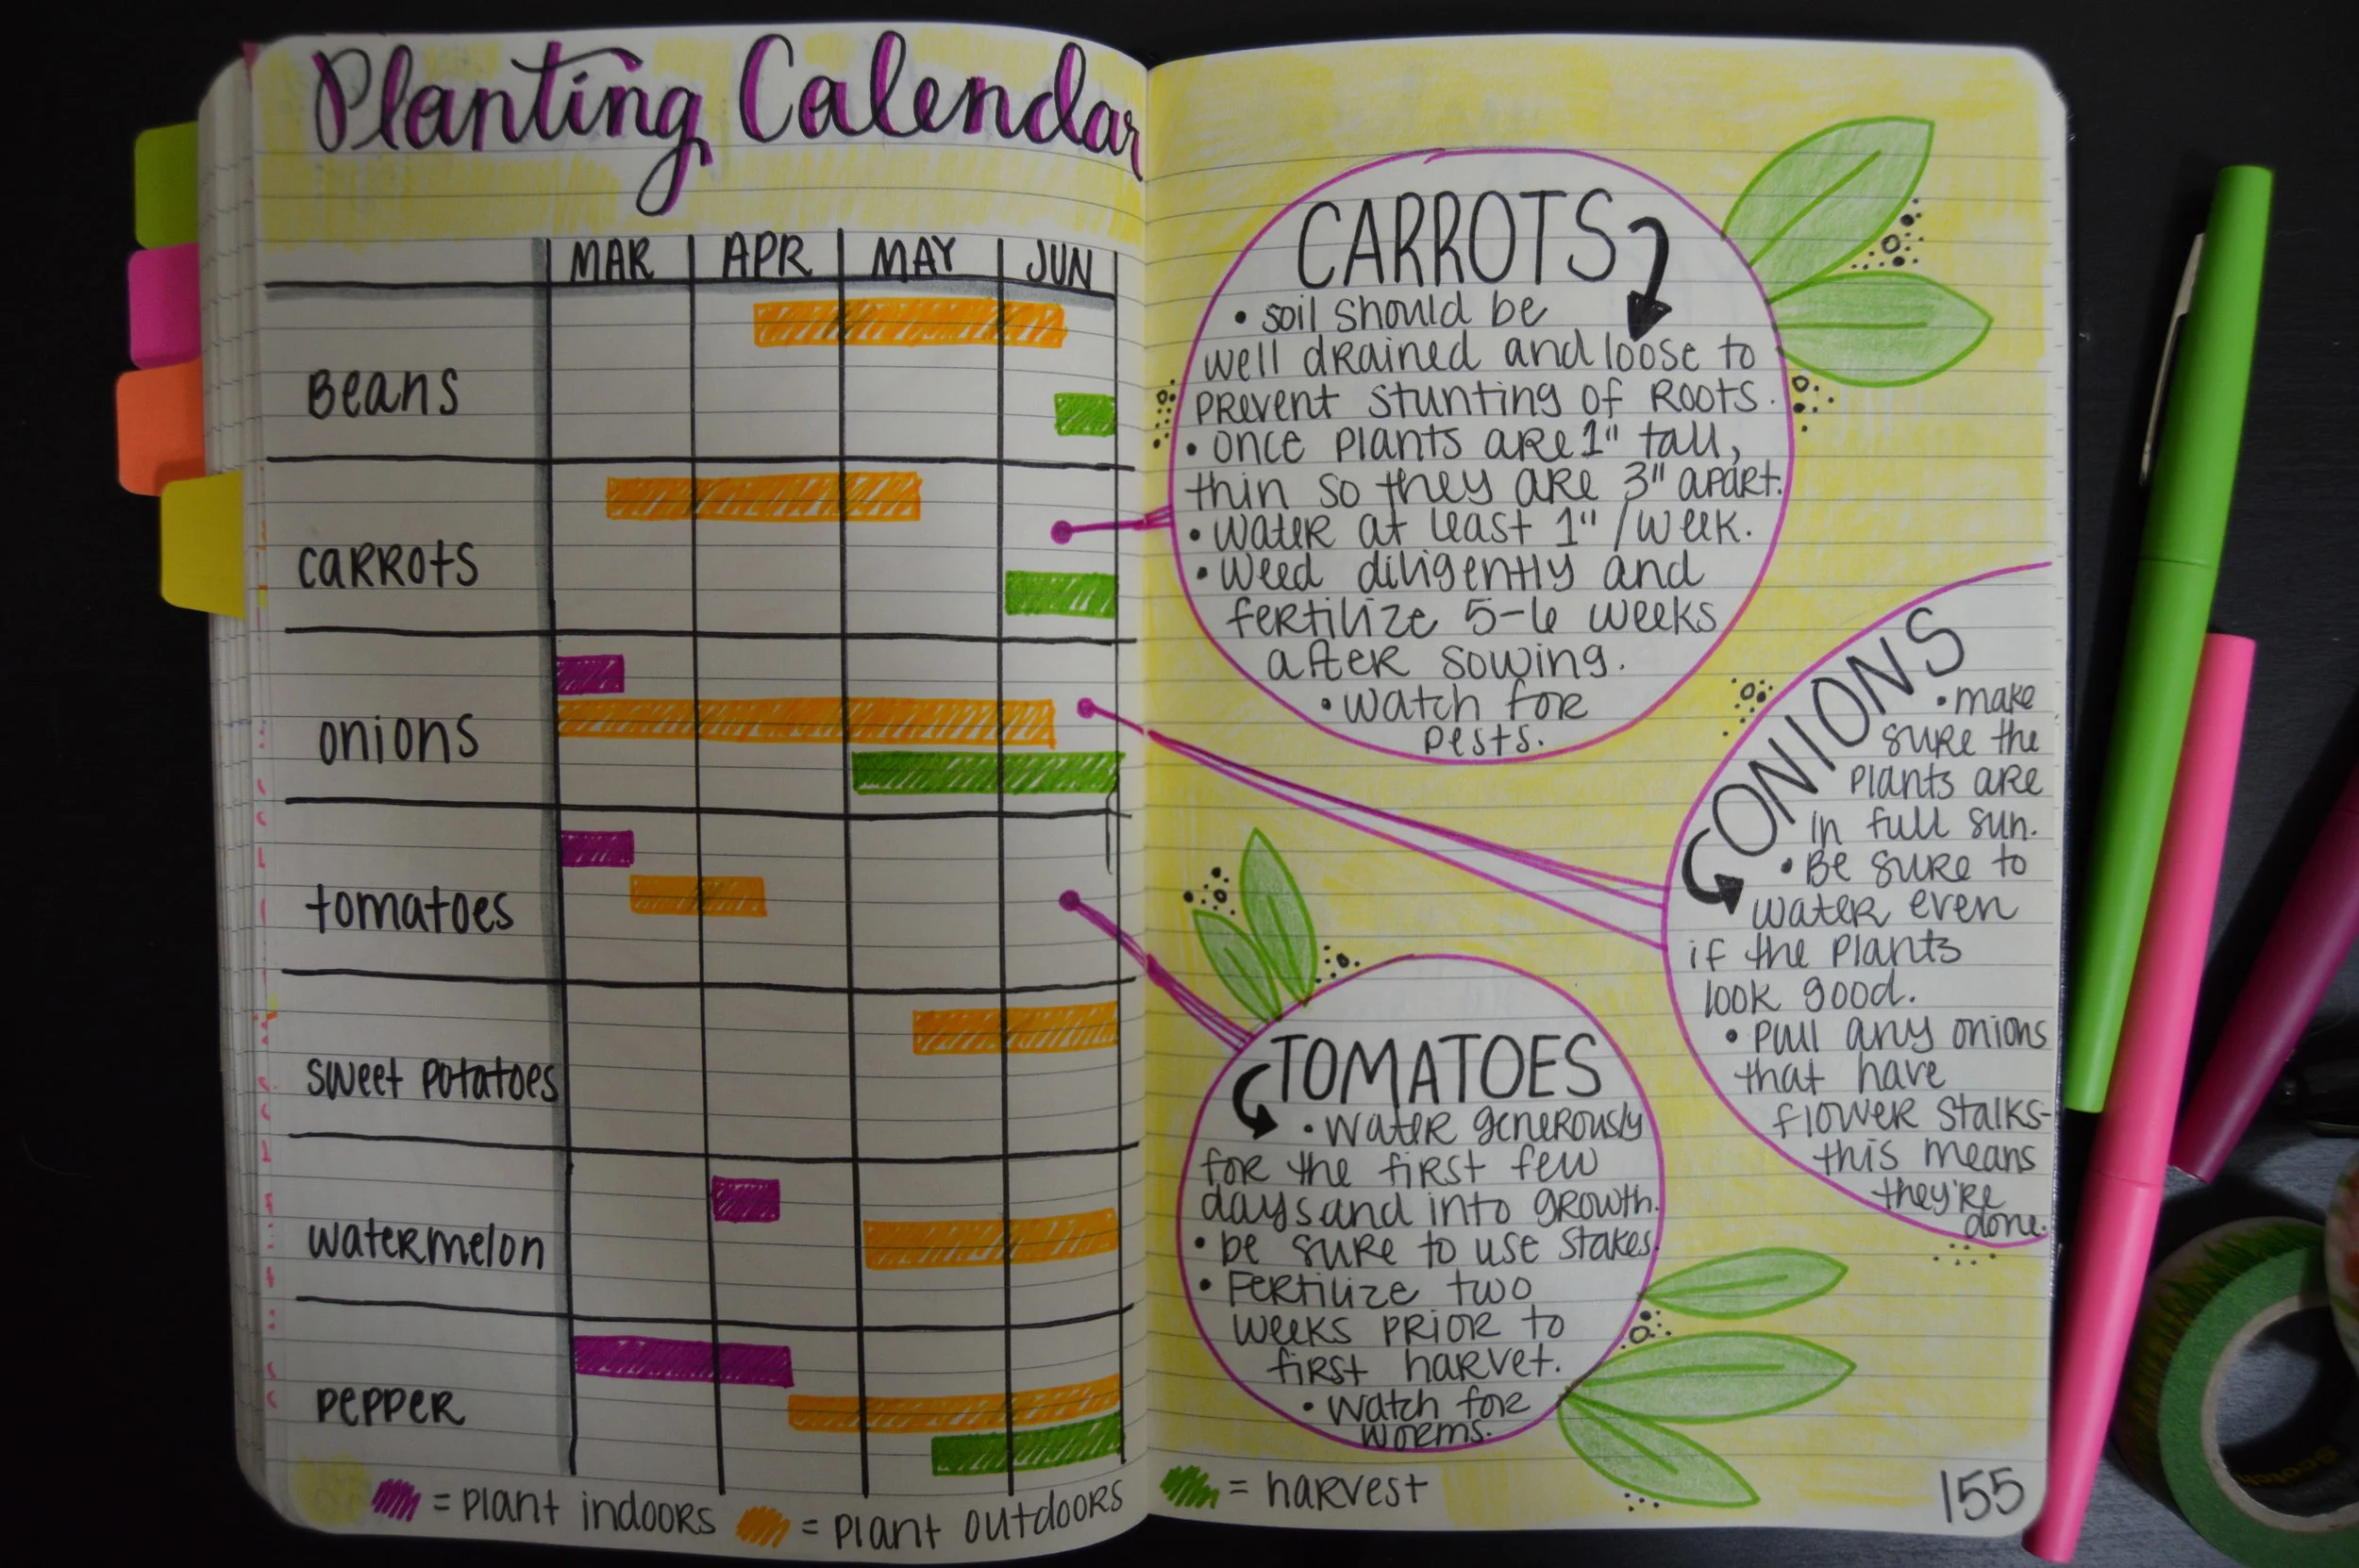 Planting Calendar
MAR APR MAY JUN
Beans
carrots
onions
tomatoes
sweet potatoes
watermelon
pepper
= plant indoors = plant outdoors
CARROTS
• soil should be
well drained and loose to
prevent stunting of roots.
• once plants are 1" tall,
thin so they are 3" apart.
• water at least 1" / week.
• weed diligently and
fertilize 5-6 weeks
after sowing.
• watch for
pests.
ONIONS
• make
sure the
plants are
in full sun.
• Be sure to
water even
if the plants
look good.
• pull any onions
that have
flower stalks-
this means
they're
done.
TOMATOES
• water generously
for the first few
days and into growth.
• be sure to use stakes.
• Fertilize two
weeks prior to
first harvet.
• watch for
worms.
= harvest
155
Scotch